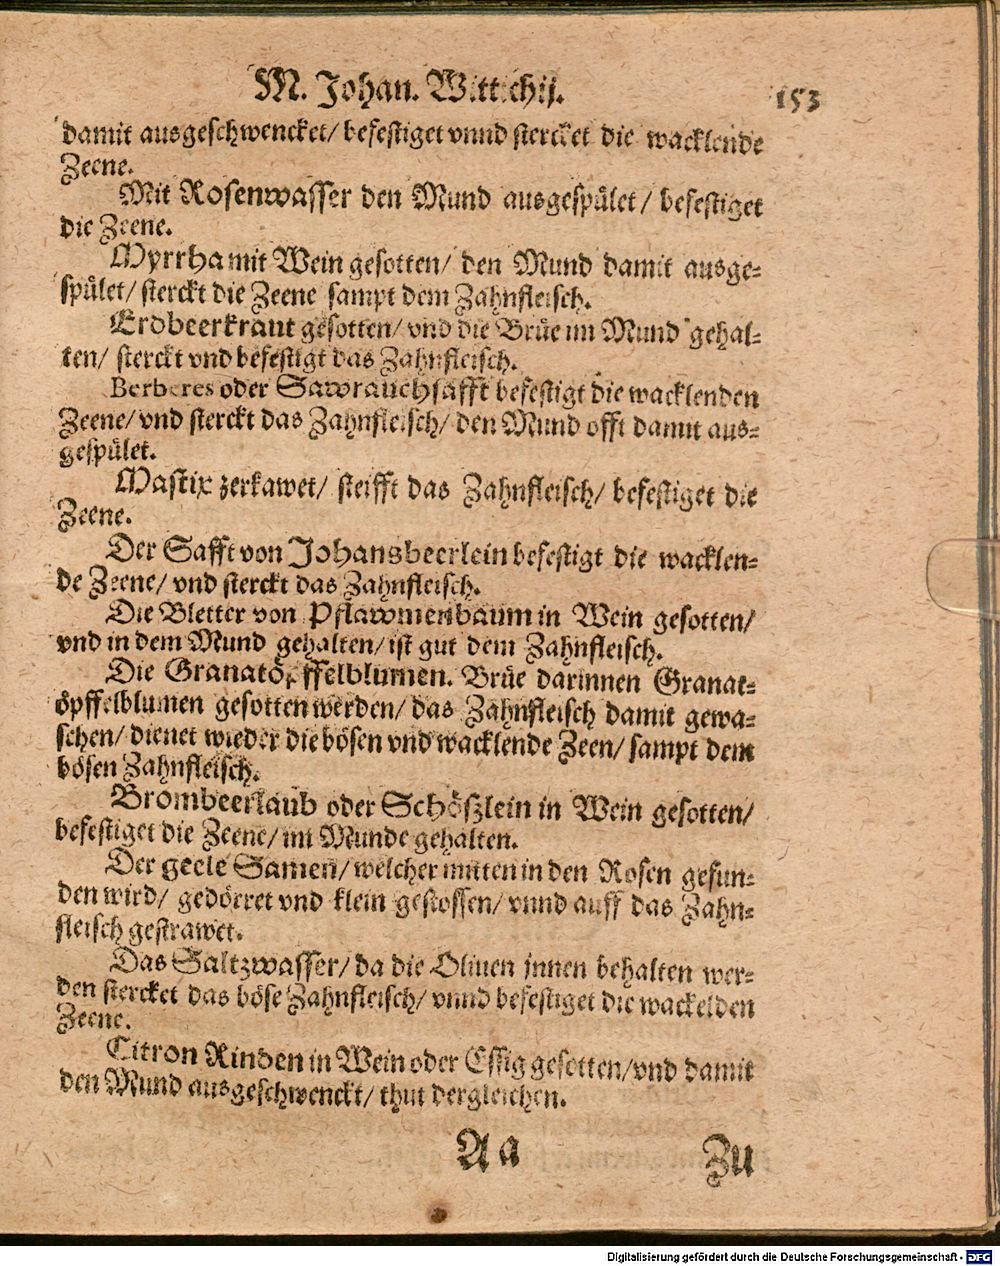 M. Johan. Wittichij. 153
damit ausgeschwencket/ befestiget vnnd stercket die wacklende
Zeene.
Mit Rosenwasser den Mund ausgespület/ befestiget
die Zeene.
Myrrha mit Wein gesotten/ den Mund damit ausge-
spület/ sterckt die Zeene sampt dem Zahnfleisch.
Erdbeerkraut gesotten/ vnd die Brüe im Mund gehal-
ten/ sterckt vnd befestigt das Zahnfleisch.
Berberes oder Sawrauchsafft befestigt die wacklenden
Zeene/ vnd sterckt das Zahnfleisch/ den Mund offt damit aus-
gespület.
Mastix zerkawet/ steifft das Zahnfleisch/ befestiget die
Zeene.
Der Safft von Johansbeerlein befestigt die wacklen-
de Zeene/ vnd sterckt das Zahnfleisch.
Die Bletter von Pflawmenbaum in Wein gesotten/
vnd in dem Mund gehalten/ ist gut dem Zahnfleisch.
Die Granatöpffelblumen. Brüe darinnen Granat-
öpffelblumen gesotten werden/ das Zahnfleisch damit gewa-
schen/ dienet wieder die bösen vnd wacklende Zeen/ sampt dem
bösen Zahnfleisch.
Brombeerlaub oder Schößlein in Wein gesotten/
befestiget die Zeene/ im Munde gehalten.
Der geele Samen/ welcher mitten in den Rosen gefun-
den wird/ gedörret vnd klein gestossen/ vnnd auff das Zahn-
fleisch gestrawet.
Das Saltzwasser/ da die Oliuen jnnen behalten wer-
den stercket das böse Zahnfleisch/ vnnd befestiget die wackelden
Zeene.
Citron Rinden in Wein oder Essig gesotten/ vnd damit
den Mund ausgeschwenckt/ thut dergleichen.
Aa Zu
Digitalisierung gefördert durch die Deutsche Forschungsgemeinschaft - DFG